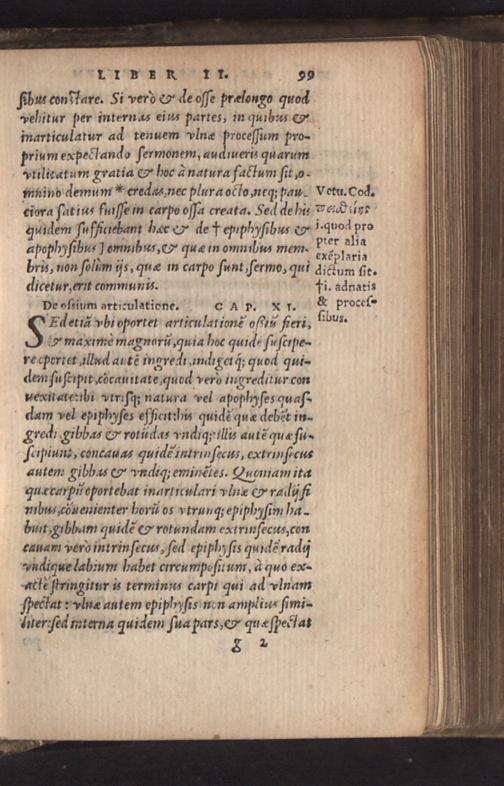 LIBER II. 99
ſibus conſtare. Si verò & de oſſe prælongo quod
vehitur per internas eius partes, in quibus &
inarticulatur ad tenuem vlnæ proceſſum pro-
prium expectando ſermonem, audiueris quarum
vtilitatum gratia & hoc à natura factum ſit, o-
mnino demum * credas, nec plura octo, neq; pau-
ciora ſatius fuiſſe in carpo oſſa creata. Sed de his
quidem ſufficiebant hæc & de † epiphyſibus &
apophyſibus] omnibus, & quæ in omnibus mem-
bris, non ſolùm ijs, quæ in carpo ſunt, ſermo, qui
dicetur, erit communis.
Vetu. Cod.
i. quod pro
pter alia
exẽplaria
dictum ſit.
†i. adnatis
& proceſ-
ſibus.
De oſſium articulatione. CAP. XI.
SEd etiã vbi oportet articulationẽ oſſiũ fieri,
& maximè magnorũ, quia hoc quidẽ ſuſcipe-
re oportet, illud autẽ ingredi, indigetq; quod qui-
dem ſuſcipit, cõcauitate, quod verò ingreditur con
uexitate: ibi vtriſq; natura vel apophyſes quaſ-
dam vel epiphyſes efficit: his quidẽ quæ debẽt in-
gredi, gibbas & rotũdas vndiq; illis autẽ quæ ſu-
ſcipiunt, concauas quidẽ intrinſecus, extrinſecus
autem gibbas & vndiq; eminẽtes. Quoniam ita
quæ carpũ oportebat inarticulari vlnæ & radij fi
nibus, cõuenienter horũ os vtrunq; epiphyſim ha-
buit, gibbam quidẽ & rotundam extrinſecus, con
cauam verò intrinſecus, ſed epiphyſis quidẽ radij
vndique labium habet circumpoſitum, à quo ex-
actè ſtringitur is terminus carpi qui ad vlnam
ſpectat: vlnæ autem epiphyſis non amplius ſimi-
liter: ſed interna quidem ſua pars, & quæ ſpectat
g 2